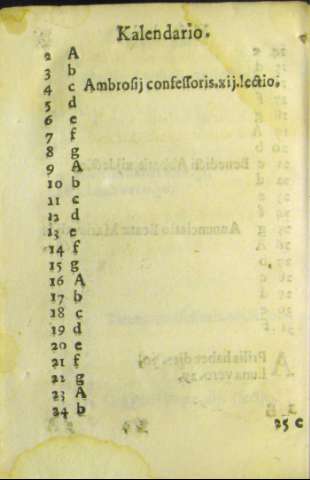 Kalendario.
2 A
3 b
4 c Ambrosij confessoris.xij.lectio.
5 d
6 e
7 f
8 g
9 A
10 b
11 c
12 d
13 e
14 f
15 g
16 A
17 b
18 c
19 d
20 e
21 f
22 g
23 A
24 b
25 c